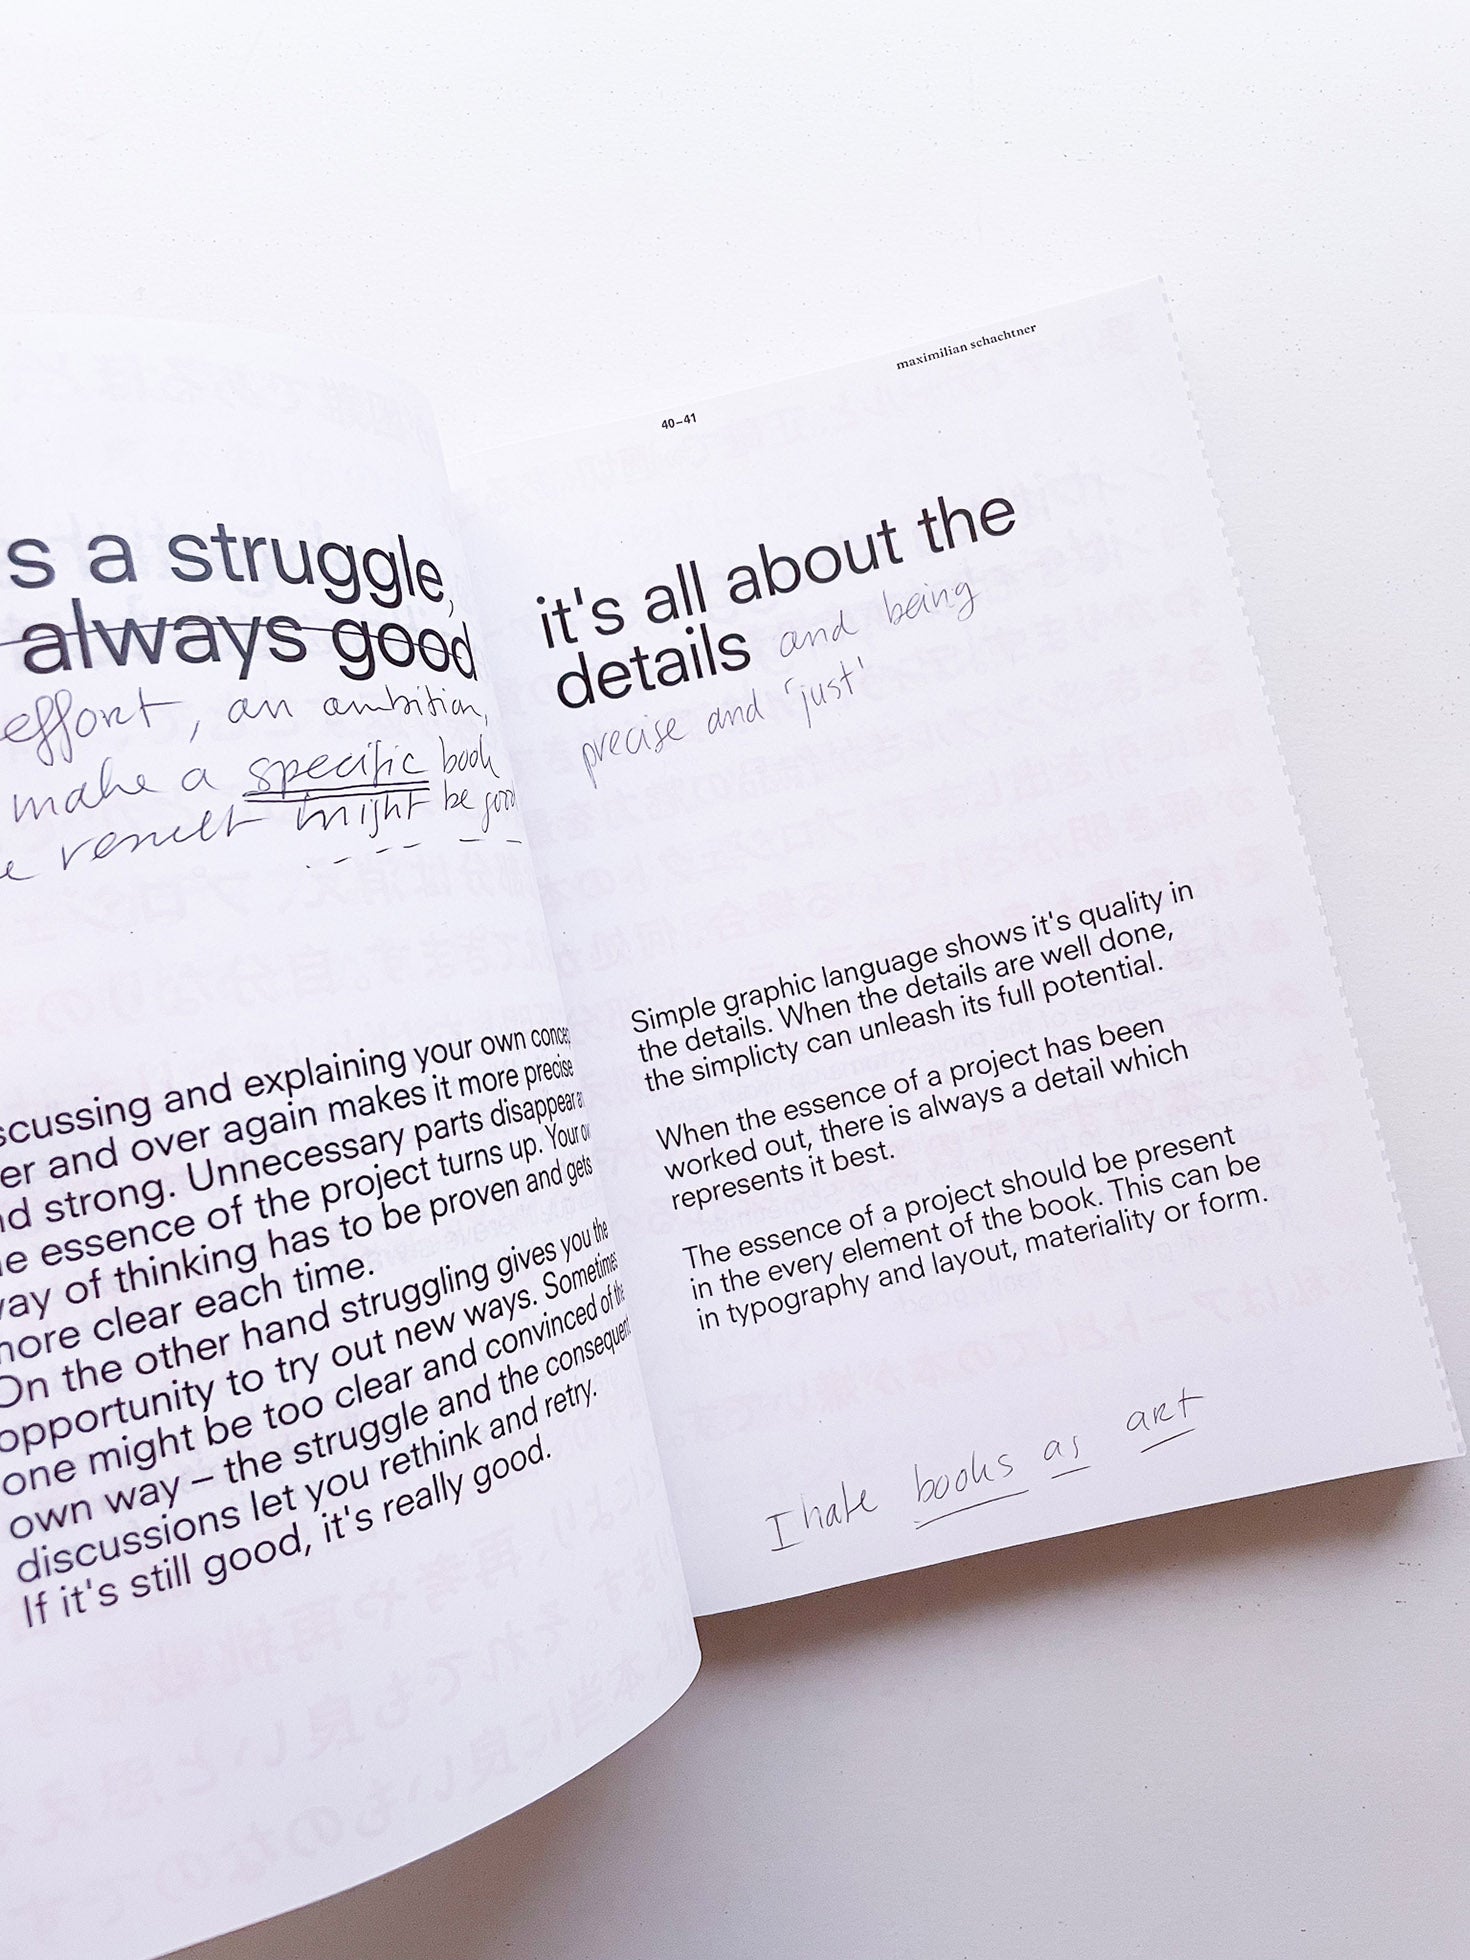 s a struggle,
always good
effort, an ambition,
make a specific book
result might be good
scussing and explaining your own concep
er and over again makes it more precise
nd strong. Unnecessary parts disappear a
he essence of the project turns up. Your ow
way of thinking has to be proven and gets
more clear each time.
On the other hand struggling gives you the
opportunity to try out new ways. Sometimes
one might be too clear and convinced of the
own way – the struggle and the consequent
discussions let you rethink and retry.
If it's still good, it's really good.
40–41
maximilian schachtner
it's all about the
details and being
precise and 'just'
Simple graphic language shows it's quality in
the details. When the details are well done,
the simplicty can unleash its full potential.
When the essence of a project has been
worked out, there is always a detail which
represents it best.
The essence of a project should be present
in the every element of the book. This can be
in typography and layout, materiality or form.
I hate books as art